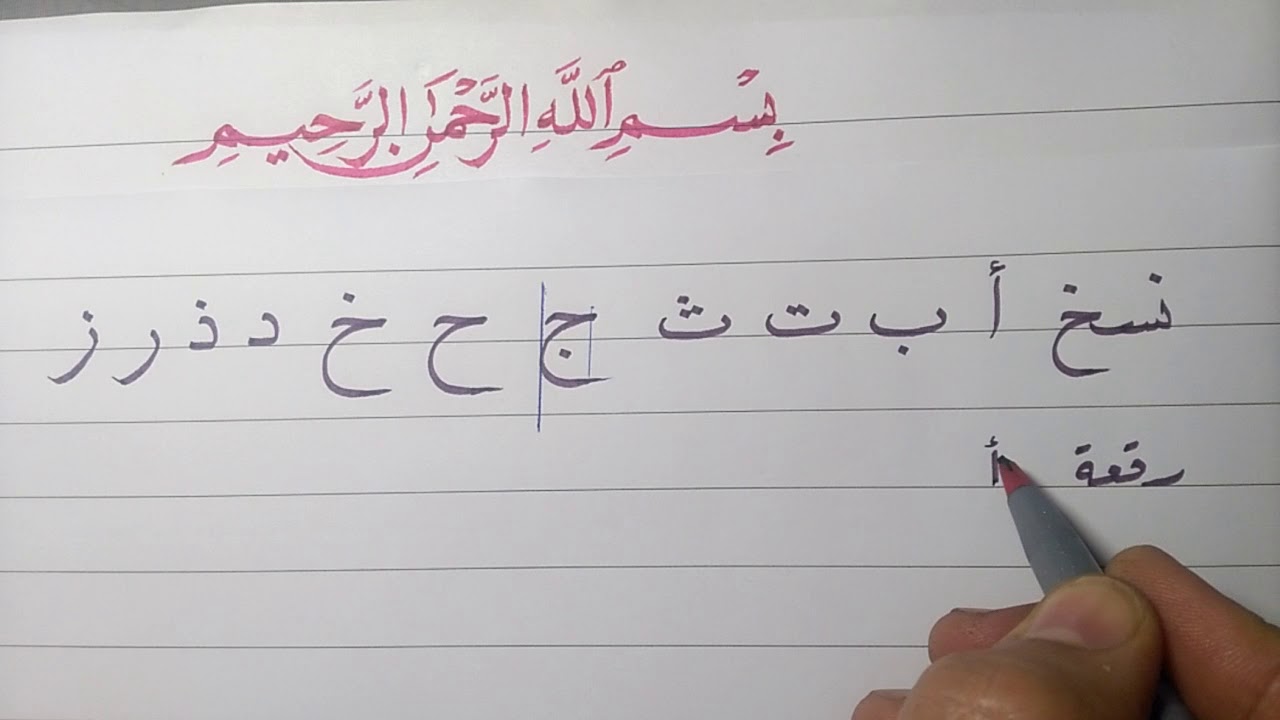 بِسْمِ ٱللَّهِ الرَّحْمَٰنِ الرَّحِيمِ
نسخ أ ب ت ث ج ح خ د ذ ر ز
رقعة أ